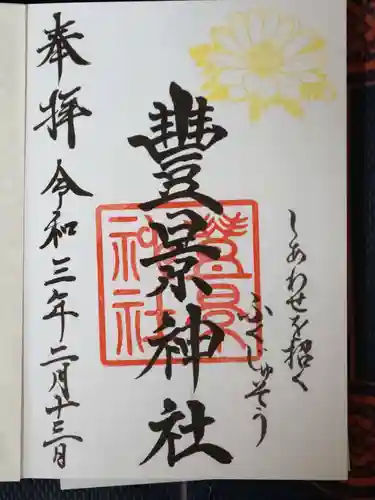 しあわせを招く
ふくじゅそう
豊景神社
豊景神社
奉拝 令和三年二月十三日